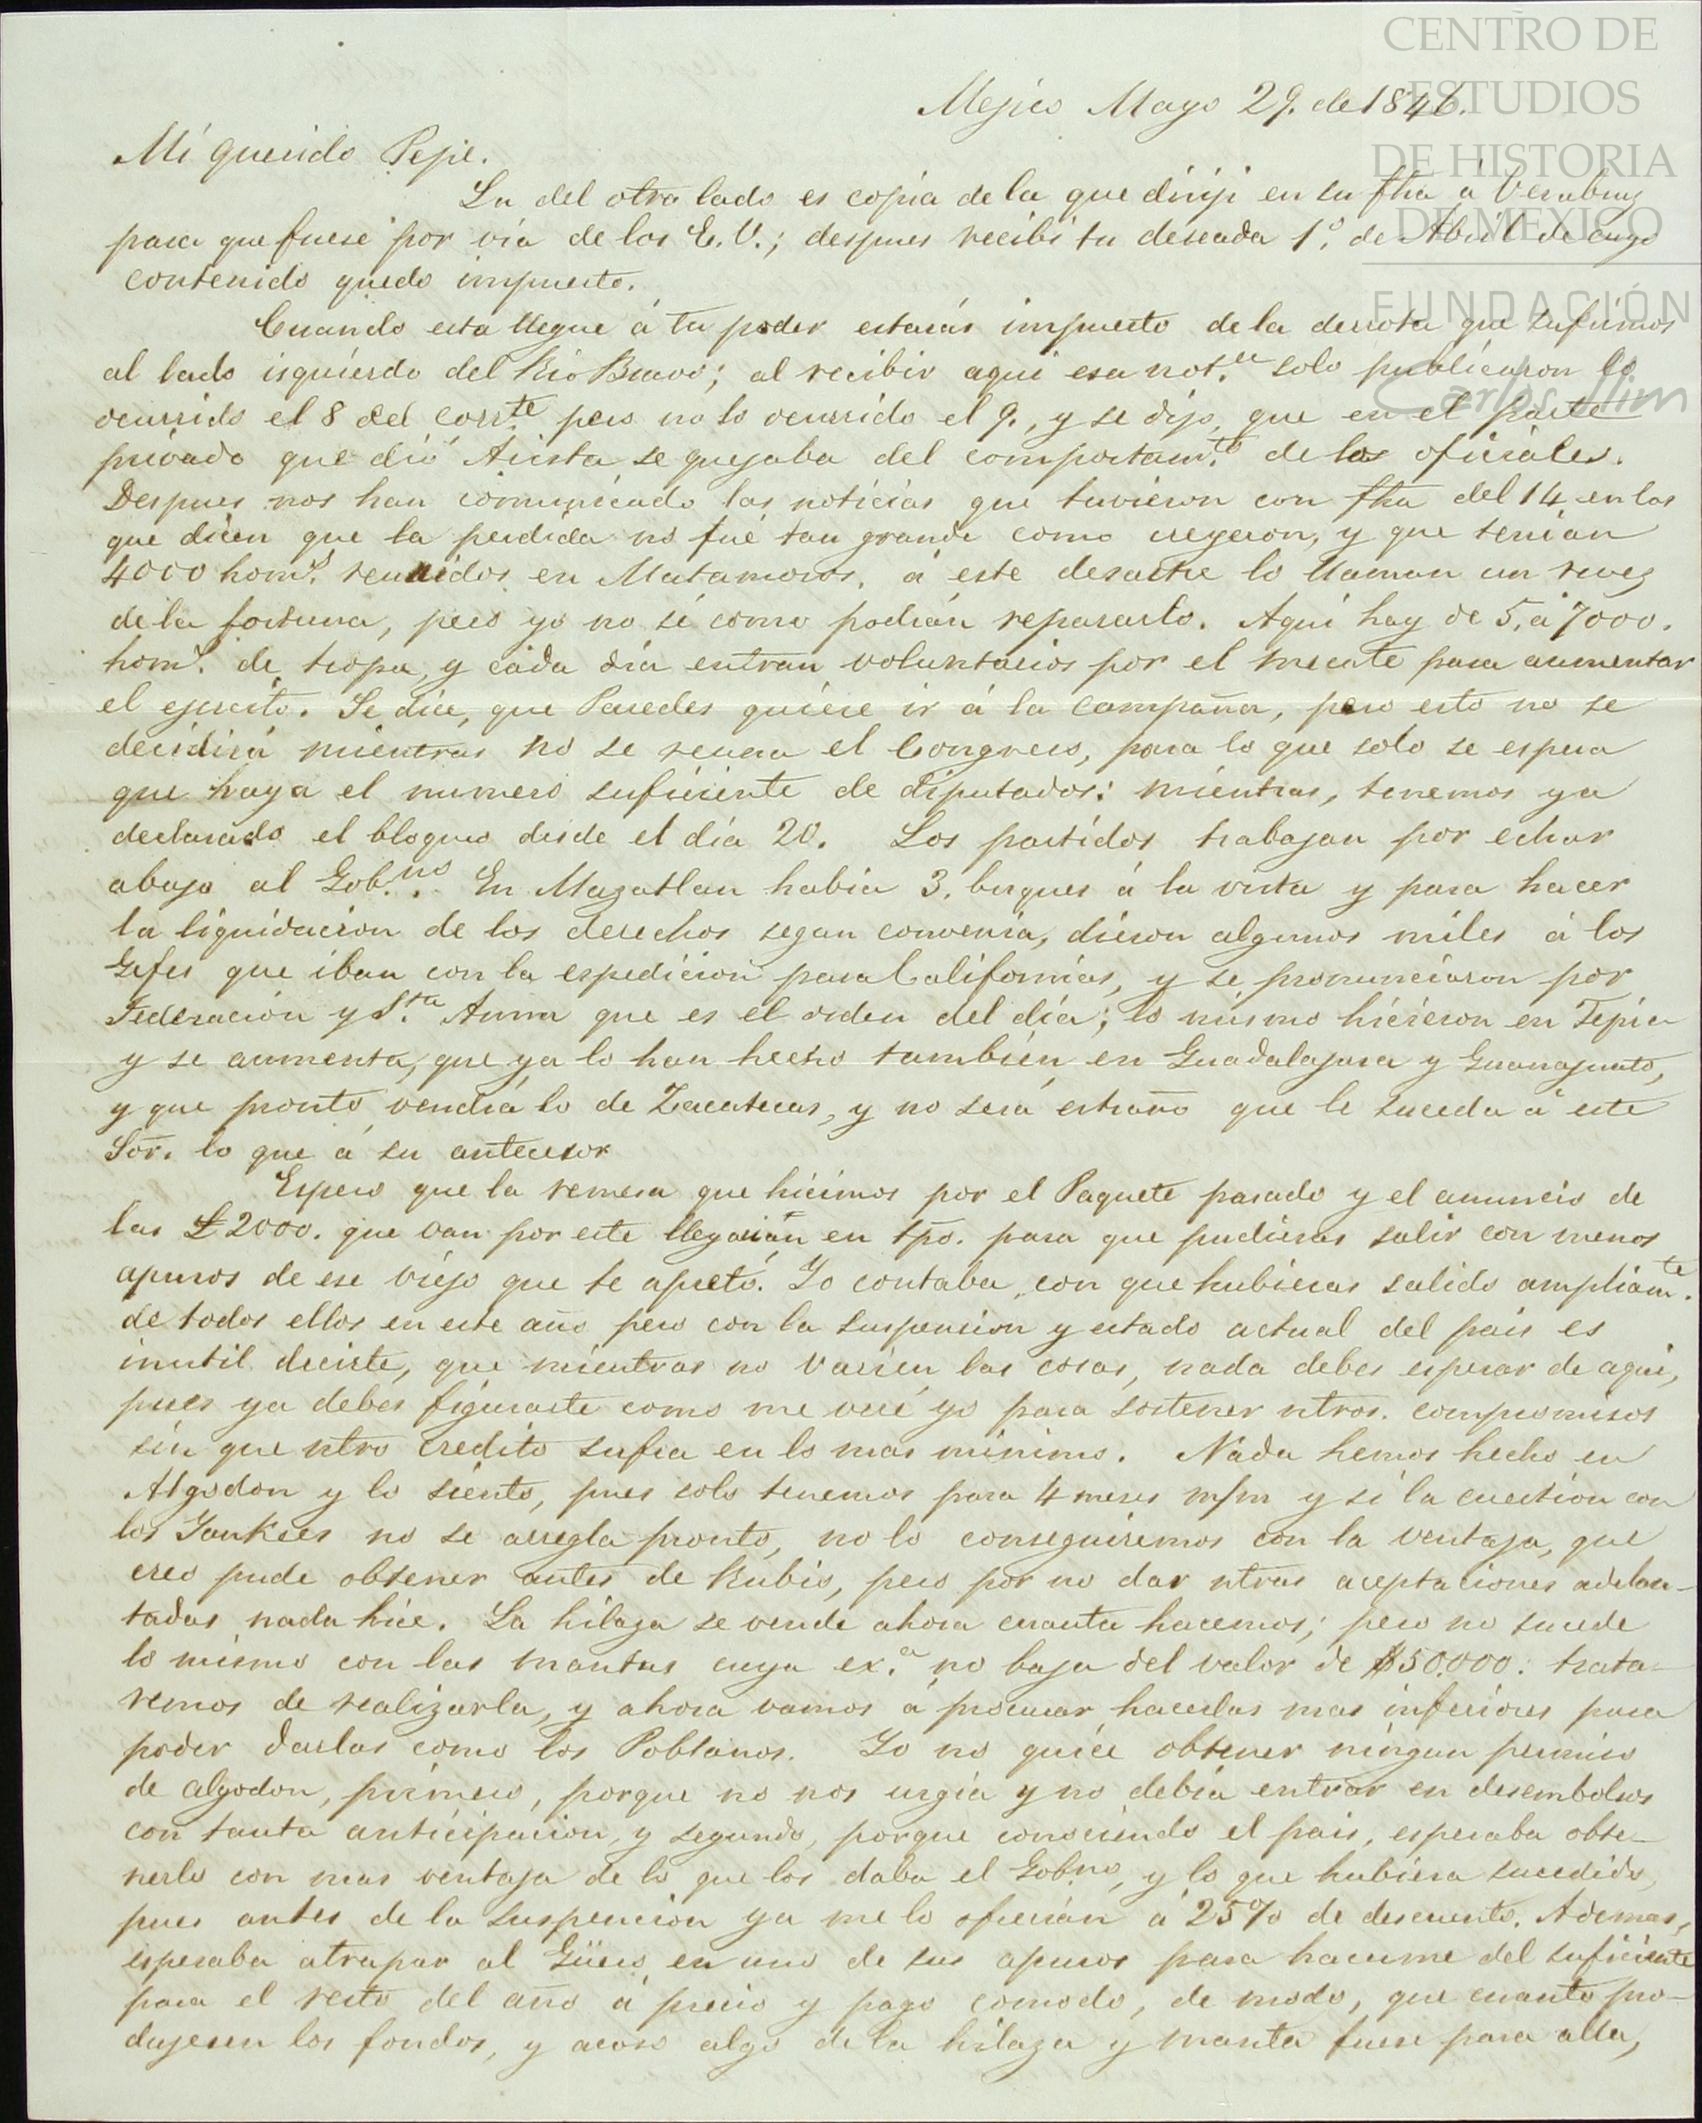 CENTRO DE
ESTUDIOS
DE HISTORIA
DE MÉXICO
FUNDACIÓN
Carlos Slim
Mejico Mayo 29. de 1846.
Mi querido Pepe.
La del otro lado es copia de la que diriji en su fha a Verabruz
para que fuese por via de los E. U.; despues recibi tu deseada 1º. de Abril de cuyo
contenido quedo impuesto.
Cuando esta llegue á tu poder estarás impuesto de la derrota que sufrimos
al lado isquierdo del Rio Bravo; al recibir aqui esa not.ª solo publicaron lo
ocurrido el 8 del corr.te pero no lo ocurrido el 9., y se dijo, que en el parte
privado que dió Arista se quejaba del comportam.to de los oficiales.
Despues nos han comunicado las noticias que tuvieron con fha del 14 en las
que dicen que la perdida no fué tan grande como creyeron, y que tenian
4000 hom.s reunidos en Matamoros. á este desastre lo llaman un revez
de la fortuna, pero yo no sé como podrán repararlo. Aqui hay de 5. á 7000.
hom.s de tropa, y cada dia entran voluntarios por el mecate para aumentar
el ejercito. Se dice, que Paredes quiere ir á la campaña, pero esto no se
decidirá mientras no se reuna el Congreso, para lo que solo se espera
que haya el numero suficiente de diputados: mientras, tenemos ya
declarado el bloqueo desde el dia 20. Los partidos trabajan por echar
abajo al Gob.no. En Mazatlan habia 3. buques á la vista y para hacer
la liquidacion de los derechos segun convenia, dieron algunos miles á los
Gefes que iban con la espedicion para Californias, y se pronunciaron por
Federacion y S.ta Anna que es el orden del dia; lo mismo hicieron en Tepic
y se aumenta, que ya lo han hecho tambien en Guadalajara y Guanajuato,
y que pronto vendrá lo de Zacatecas, y no será estraño que le suceda á este
Sor. lo que á su antecesor
Espero que la remesa que hicimos por el Paquete pasado y el anuncio de
las £2000. que van por este llegarián en tpo. para que pudieras salir con menos
apuros de ese viejo que te apretó. Yo contaba, con que hubieras salido ampliam.te
de todos ellos en este año pero con la suspension y estado actual del pais es
inutil decirte, que mientras no varien las cosas, nada debes esperar de aqui,
pues ya debes figurarte como me veré yo para sostener ntros. compromisos
sin que ntro credito sufra en lo mas minimo. Nada hemos hecho en
Algodon y lo siento, pues solo tenemos para 4 meses m/m y si la cuestion con
los Yankees no se arregla pronto, no lo conseguiremos con la ventaja, que
creo pude obtener antes de Rubio, pero por no dar ntras aceptaciones adelan-
tadas nada hice. La hilaza se vende ahora cuanta hacemos; pero no sucede
lo mismo con las mantas cuya ex.ª no baja del valor de $50.000: trata-
remos de realizarla, y ahora vamos á procurar hacerlas mas inferiores para
poder darlas como los Poblanos. Yo no quice obtener ningun permiso
de algodon, primero, porque no nos urgia y no debia entrar en desembolsos
con tanta anticipacion, y segundo, porque conociendo el pais, esperaba obte-
nerlo con mas ventaja de lo que los daba el Gob.no, y lo que hubiera sucedido,
pues antes de la suspencion ya me lo ofrecián á 25% de descuento. Ademas,
esperaba atrapar al Güero en uno de sus apuros para hacerme del suficiente
para el resto del año á precio y pago comodo, de modo, que cuanto pro-
dujesen los fondos, y acaso algo de la hilaza y manta fuese para alla,